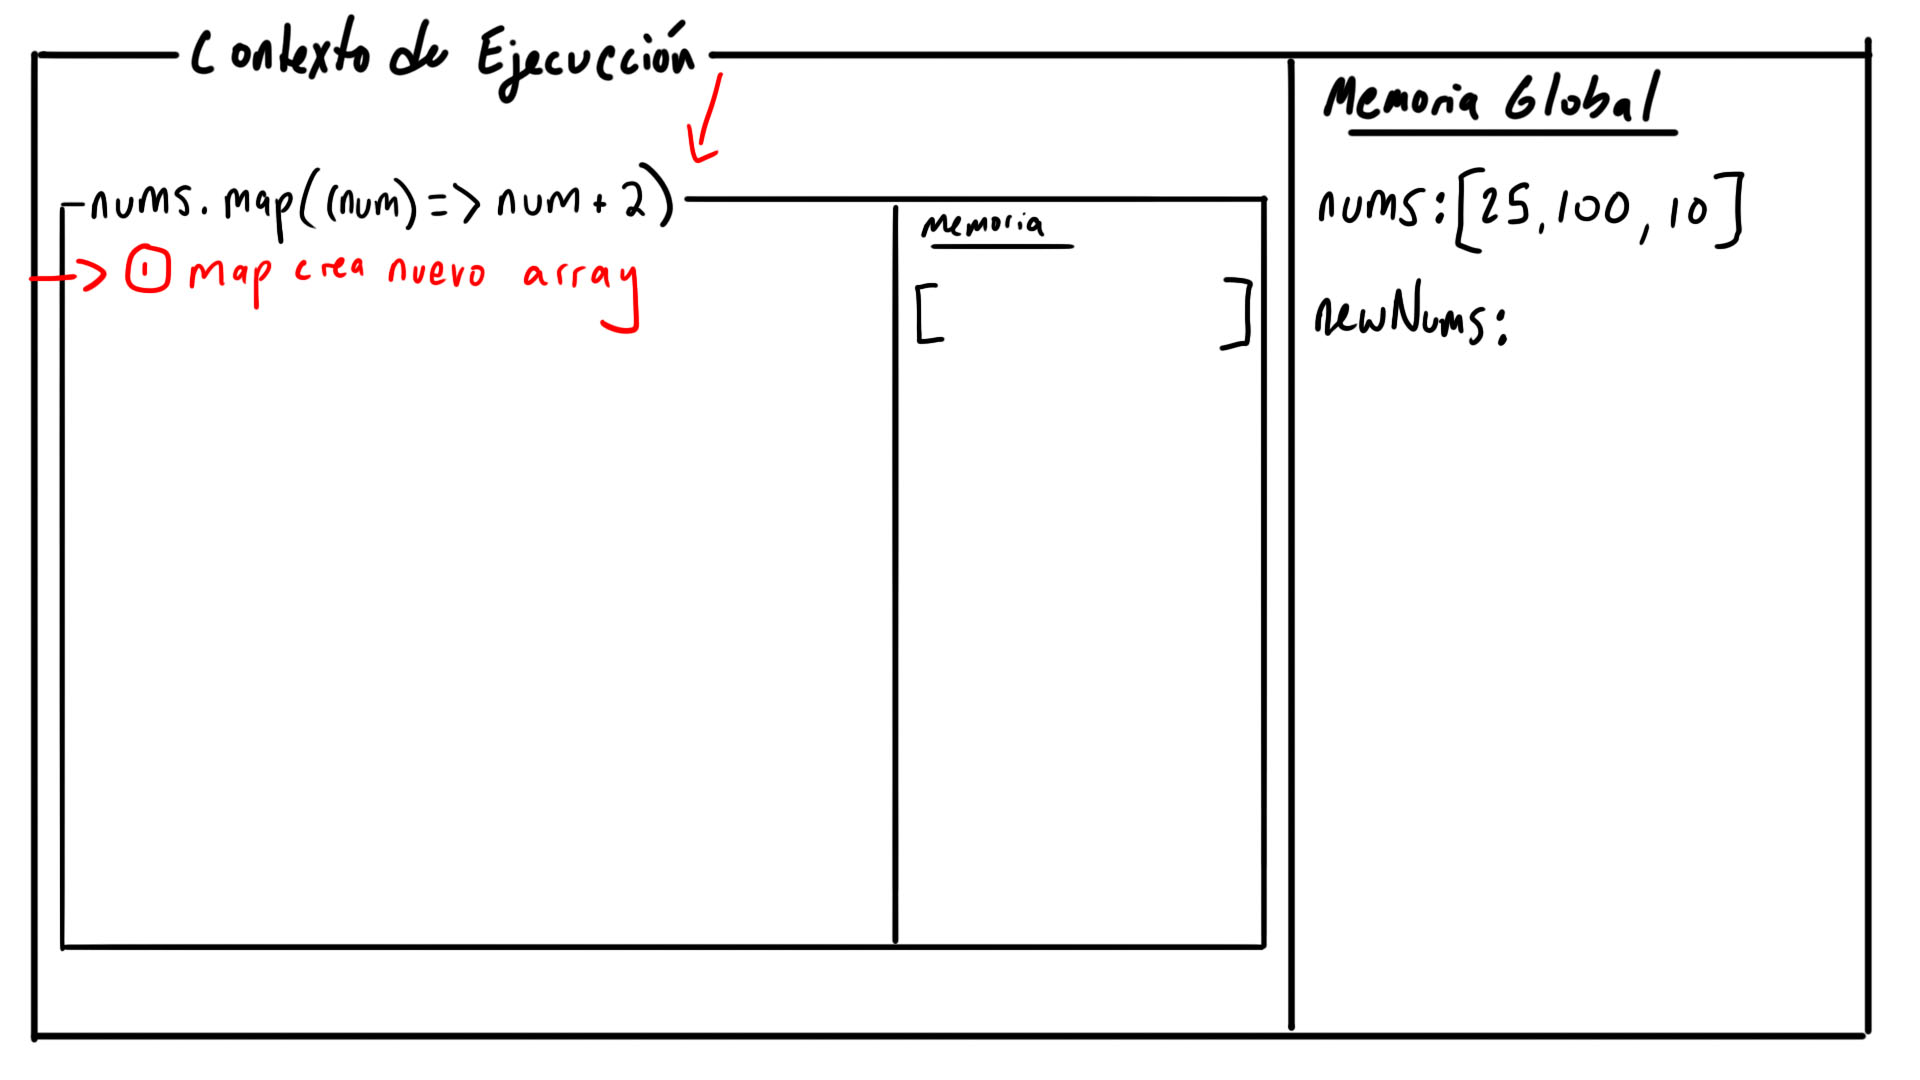 Contexto de Ejecucción
nums.map((num) => num + 2)
① map crea nuevo array
memoria
[ ]
Memoria Global
nums: [25, 100, 10]
newNums: